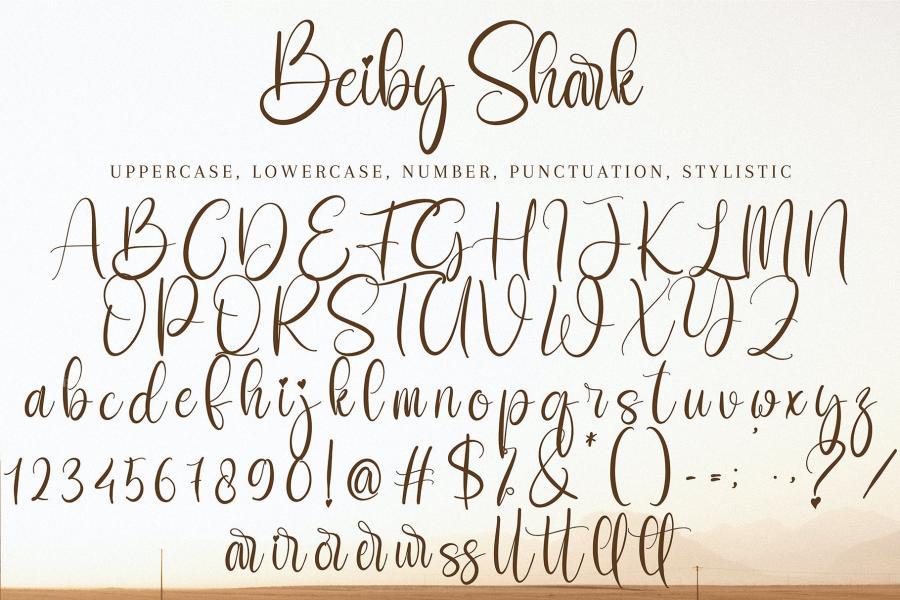 Beiby Shark
UPPERCASE, LOWERCASE, NUMBER, PUNCTUATION, STYLISTIC
A B C D E F G H I J K L M N
O P Q R S T U V W X Y Z
a b c d e f g h i j k l m n o p q r s t u v w x y z
1 2 3 4 5 6 7 8 9 0 ! @ # $ % & * ( ) - = ; : . , ? /
ar ir or er ur ss